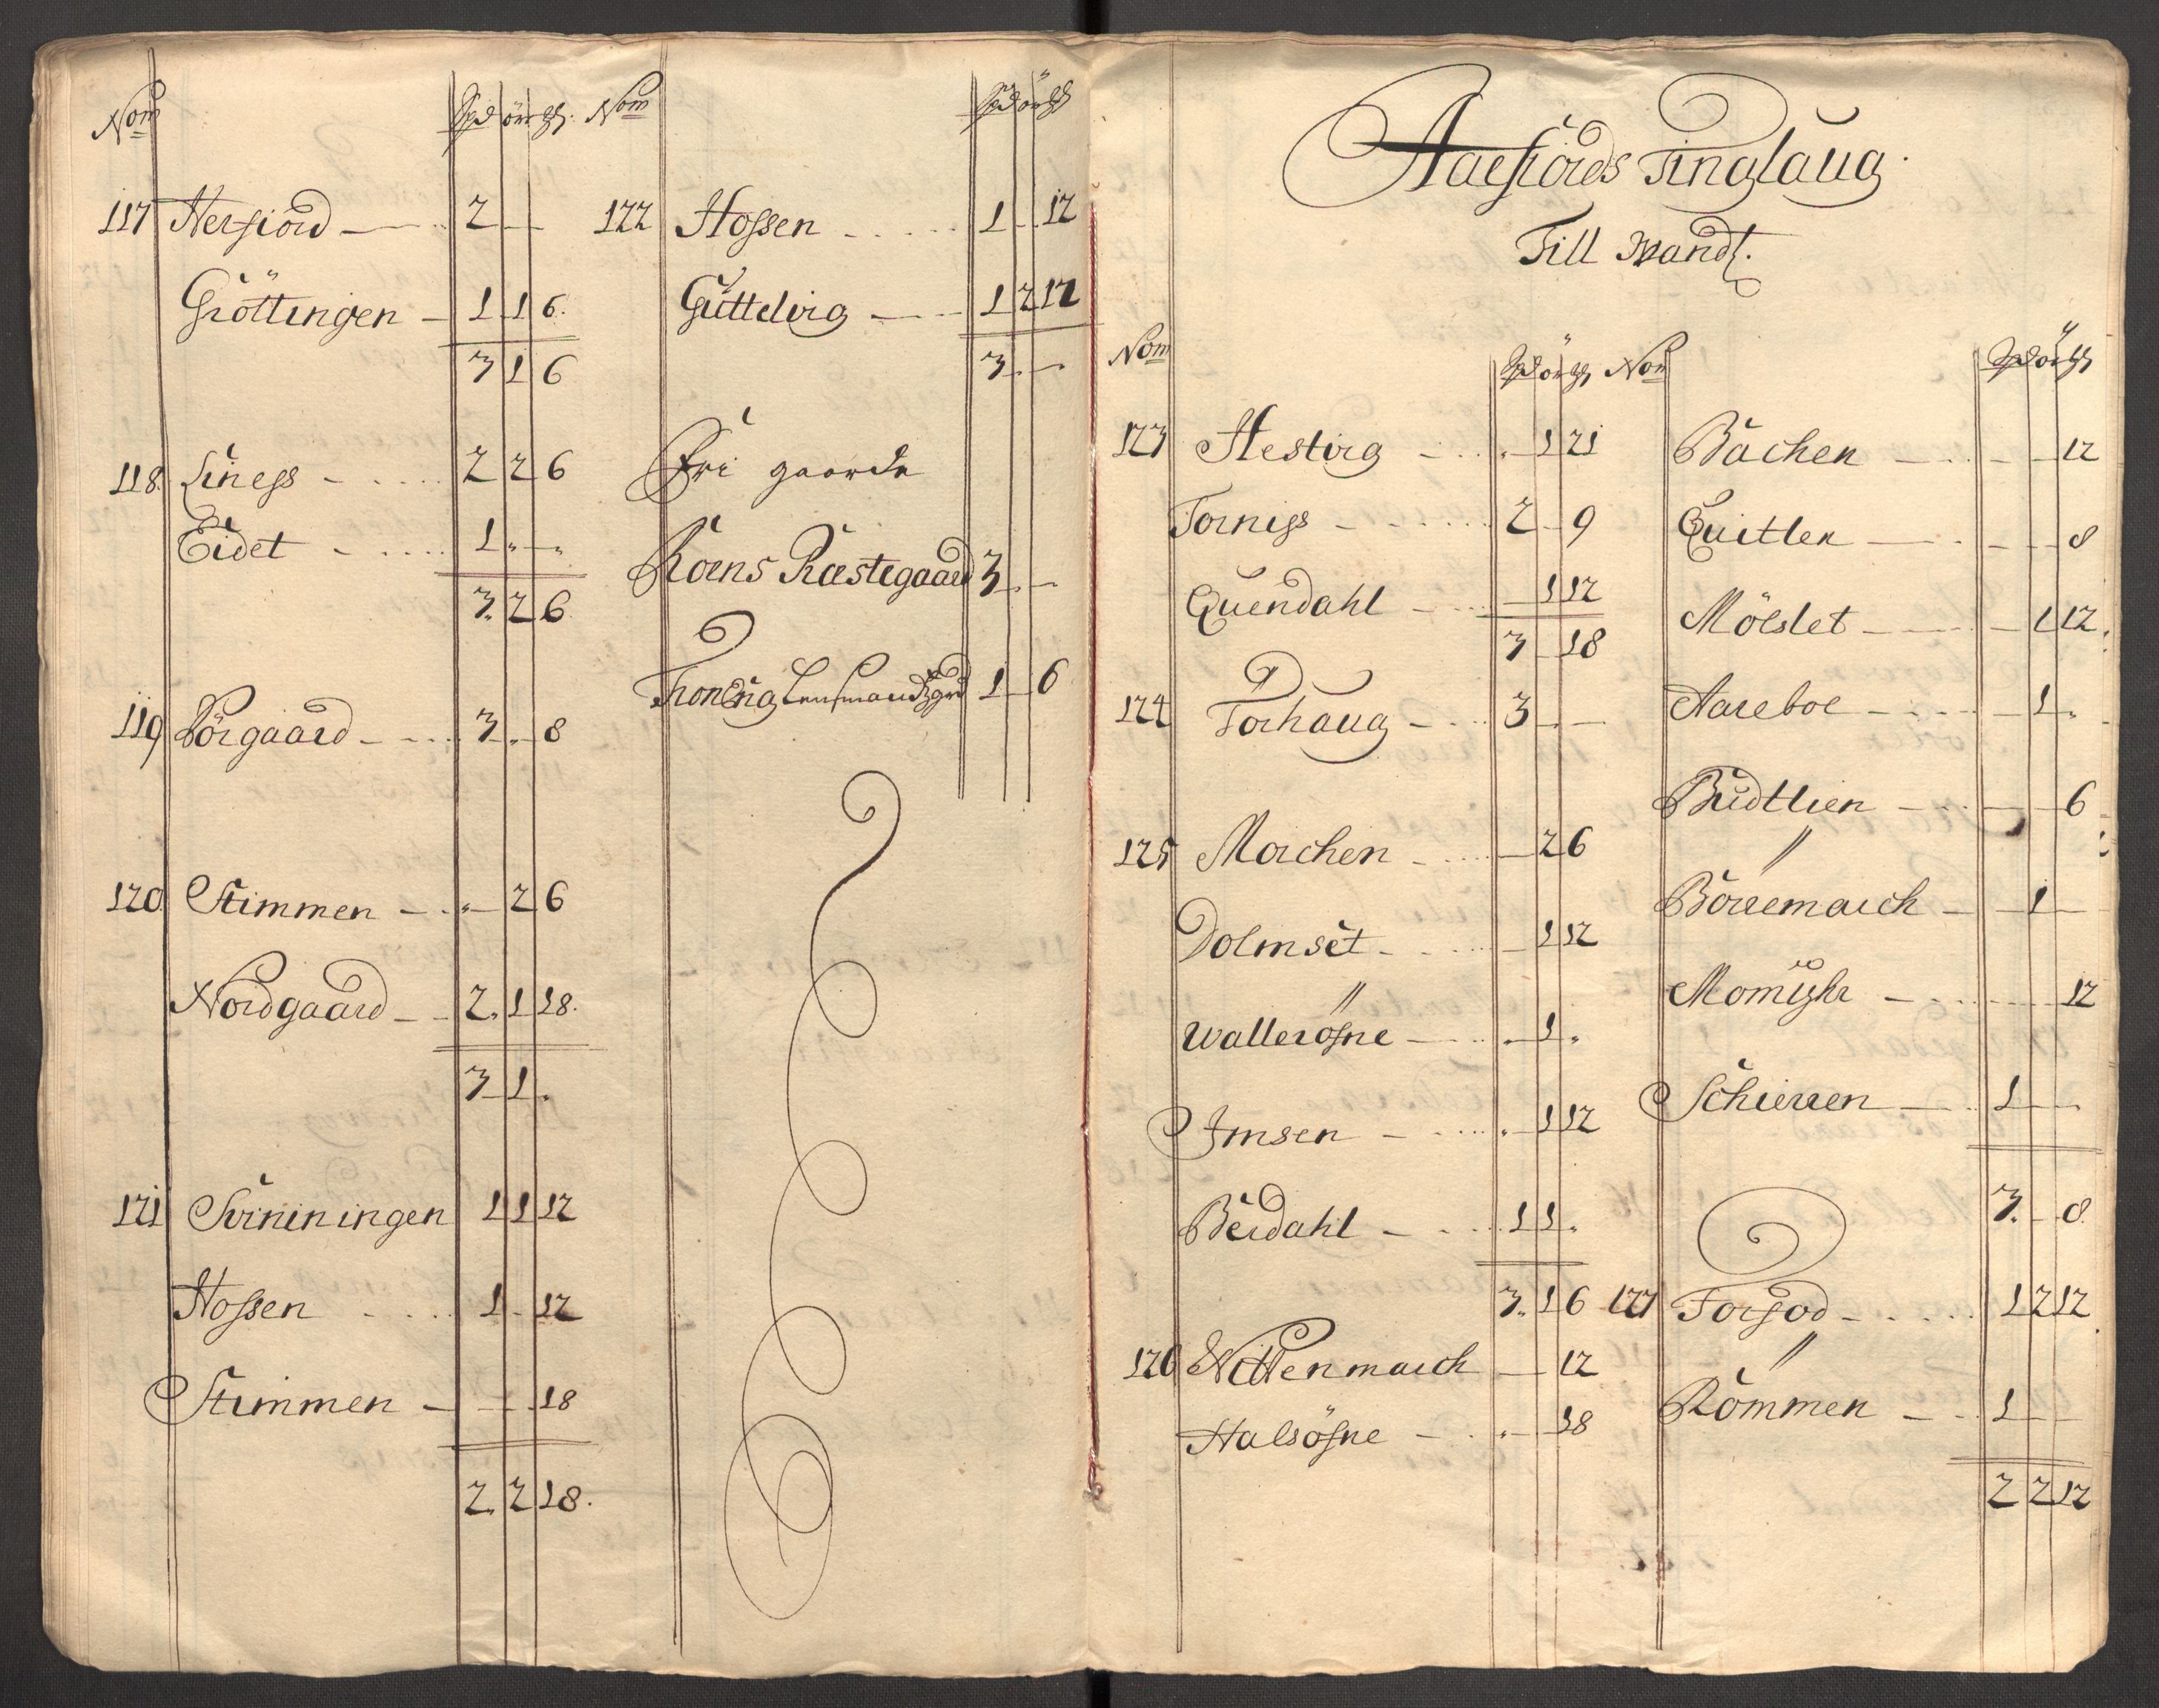 Nom Spd ör
117 Herfiord — 2 — —
Gröttingen — 1 1 6.
3 1 6
118. Liness - . . . . 2 2 6
Eidet - . . . . 1 . — .
3. 2 6
119 Börgaard - - . . 3 . — 8
120 Stimmen - . . — 2 6
Nordgaard - - 2. 1 18.
3 1 .
121 Sörniningen 1 1 12
Hossen . . . . 1 - 12
Stimmen - — - 18
2. 2 18.
Nom Spd ör
122 Hossen . . . . . 1 - 12
Guttelvig — 1 2 12
3 . —
Fri gaarde
Röens Præstegaard 3 . —
Lensmandsgrd 1 — 6
Aaefiords Tinglaug.
Till Mandt.
Nom Spd ör
123 Hestvig - . . . — 1 21
Torniss - . . . . . 2 — 9
Quendahl - . . . — 1 12
3 — 18
124 Torhaug - . . . 3 . —
125 Morchen - . . . — 2 6
Dolmset - . . . . — 1 12
"
Wallerosne — . . . — 1 .
Imsen - . . . . — 1 12
Berdahl - . . . . 1 1 .
3. 1 6
126 Nittenmarch — 12
Halsösne - . . — 18
Nom Spd ör
Bachen — . . — — 12
Quitlen — . . — — 8
Mölslet — — 1 12.
Aareboe - . . . — 1 .
Budtlien - . . — — 6
"
Börremarch — — 1 —
Momyhr - . . . . . 12
Schierren — . . 1 — —
3. — 8
127 Forfod - . . . . 1 2 12
"
Rommen - . . 1 — —
2 2 12